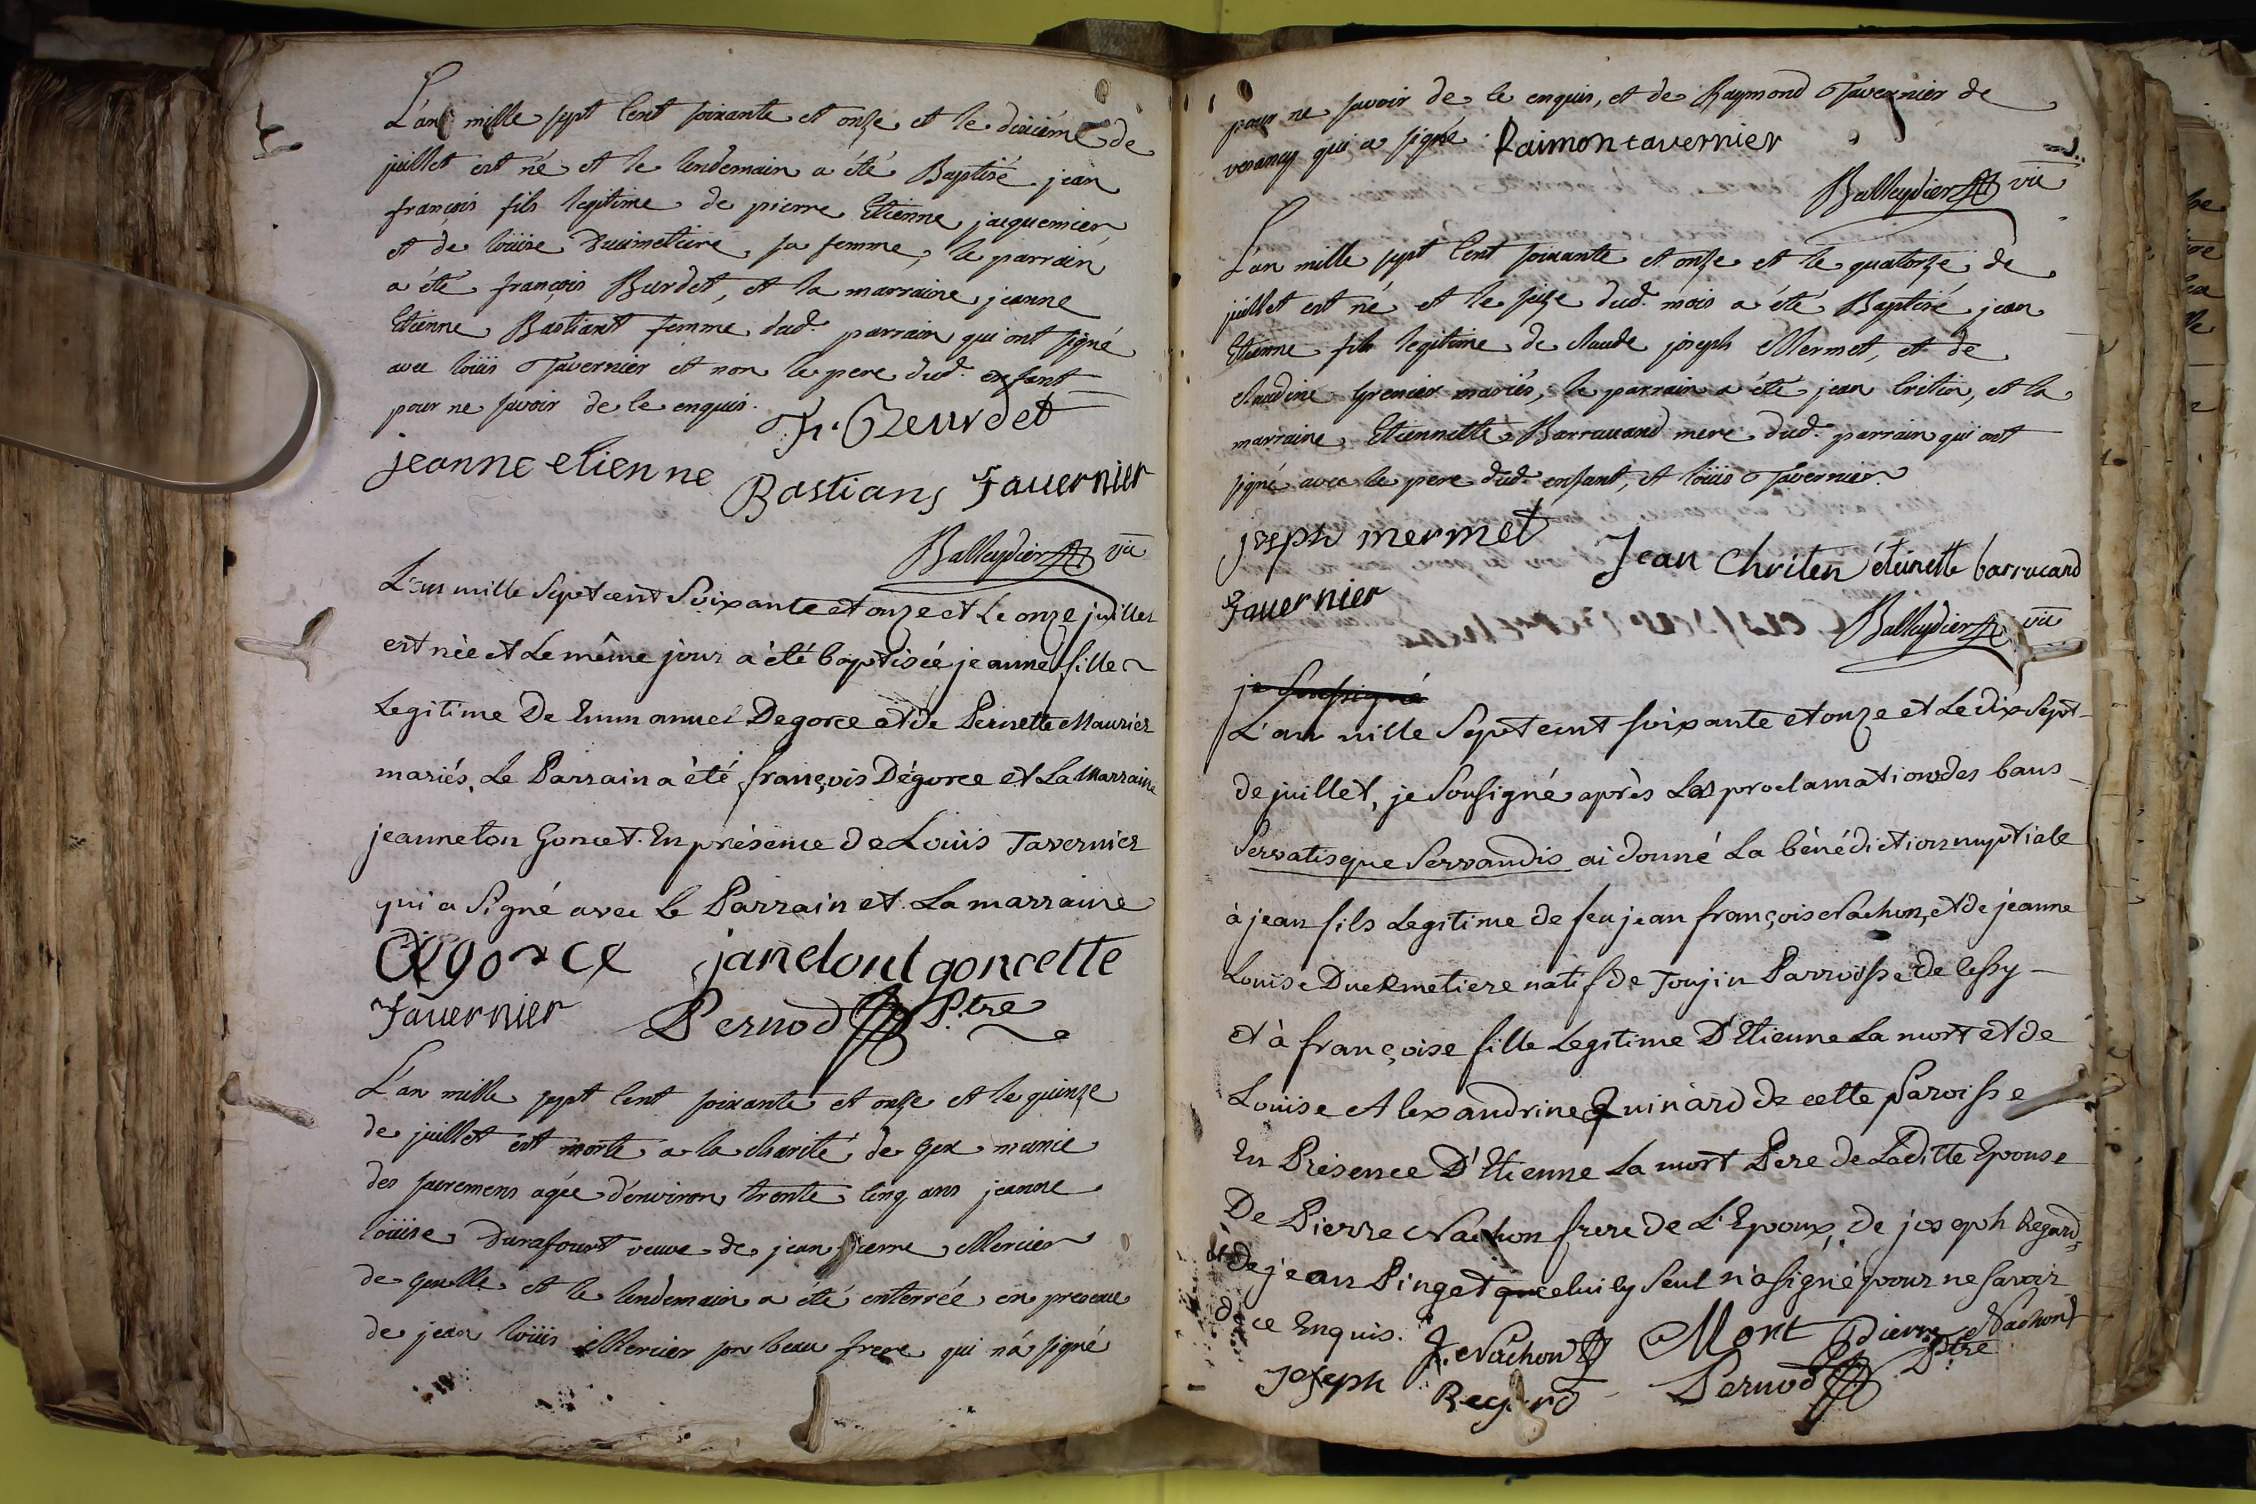 L'an mille sept Cent soixante et onze et le dixiéme de
juillet est né et le lendemain a été Baptisé jean
françois fils legitime de pierre Etienne jacquemier
et de loüise Ducimetiere sa femme, le parrain
a été françois Burdet, et la marraine jeanne
Etienne Bastiant femme dud. parrain qui ont signé
avec loüis Tavernier et non le pere dud. enfant
pour ne savoir de ce enquis.
jeanne etienne Bastians Tavernier
Balleydier vic
L'an mille Sept cent Soixante et onze et Le onze juillet
est née et Le même jour a été baptisée jeanne fille
Legitime De Emmanuel Degorce et de Pernette Maurier
mariés, Le Parrain a été françois Dégorce et La Marraine
jeanneton Goncet. En présence de Loüis Tavernier
qui a Signé avec Le Parrain et La marraine
Degorce janetont goncette
Tavernier Pernod Ptre
L'an mille sept Cent soixante et onze et le quinze
de juillet est morte a la charité de Gex munie
des sacremens agée d'environ trente Cinq ans jeanne
loüise Durafourt veuve de jean pierre Mercier
de et le lendemain a été enterrée en presence
de jean loüis Mercier son beau frere qui n'a signé
pour ne savoir de ce enquis, et de Raymond Tavernier de
verancy qui a signé. Raimon tavernier
Balleydier vic
L'an mille sept Cent soixante et onze et le quatorze de
juillet est né et le seize dud. mois a été Baptisé jean
Etienne fils legitime de claude joseph Mermet, et de
claudine Grenier mariés, le parrain a été jean Critin, et la
marraine Etiennette Barrucand mere dud. parrain qui ont
signé avec le pere dud. enfant, et loüis Tavernier.
joseph mermet Jean Chriten étienette barrucand
Tavernier
Balleydier vic
je soussigné
L'an mille Sept cent soixante et onze et Le dix Sept
de juillet, je Sousigné après Les proclamations des bans
Servatisque Servandis ai donné La bénédiction nuptiale
à jean fils Legitime de feu jean françois Nachon, et de jeanne
Louise Ducimetiere natif de Toujin Parroisse de Cessy
et à françoise fille Legitime D'Etienne La mort et de
Louise Alexandrine Quinard de cette Paroisse
En Présence D'Etienne La mort Pere de Laditte Epouse
De Pierre Nachon frere de L'Epoux, de joseph Regard,
et de jean Pinget que celui cy Seul n'a signé pour ne Savoir
de ce Enquis. J. Nachon Mort Pierre Nachon
Joseph Regard Pernod Ptre